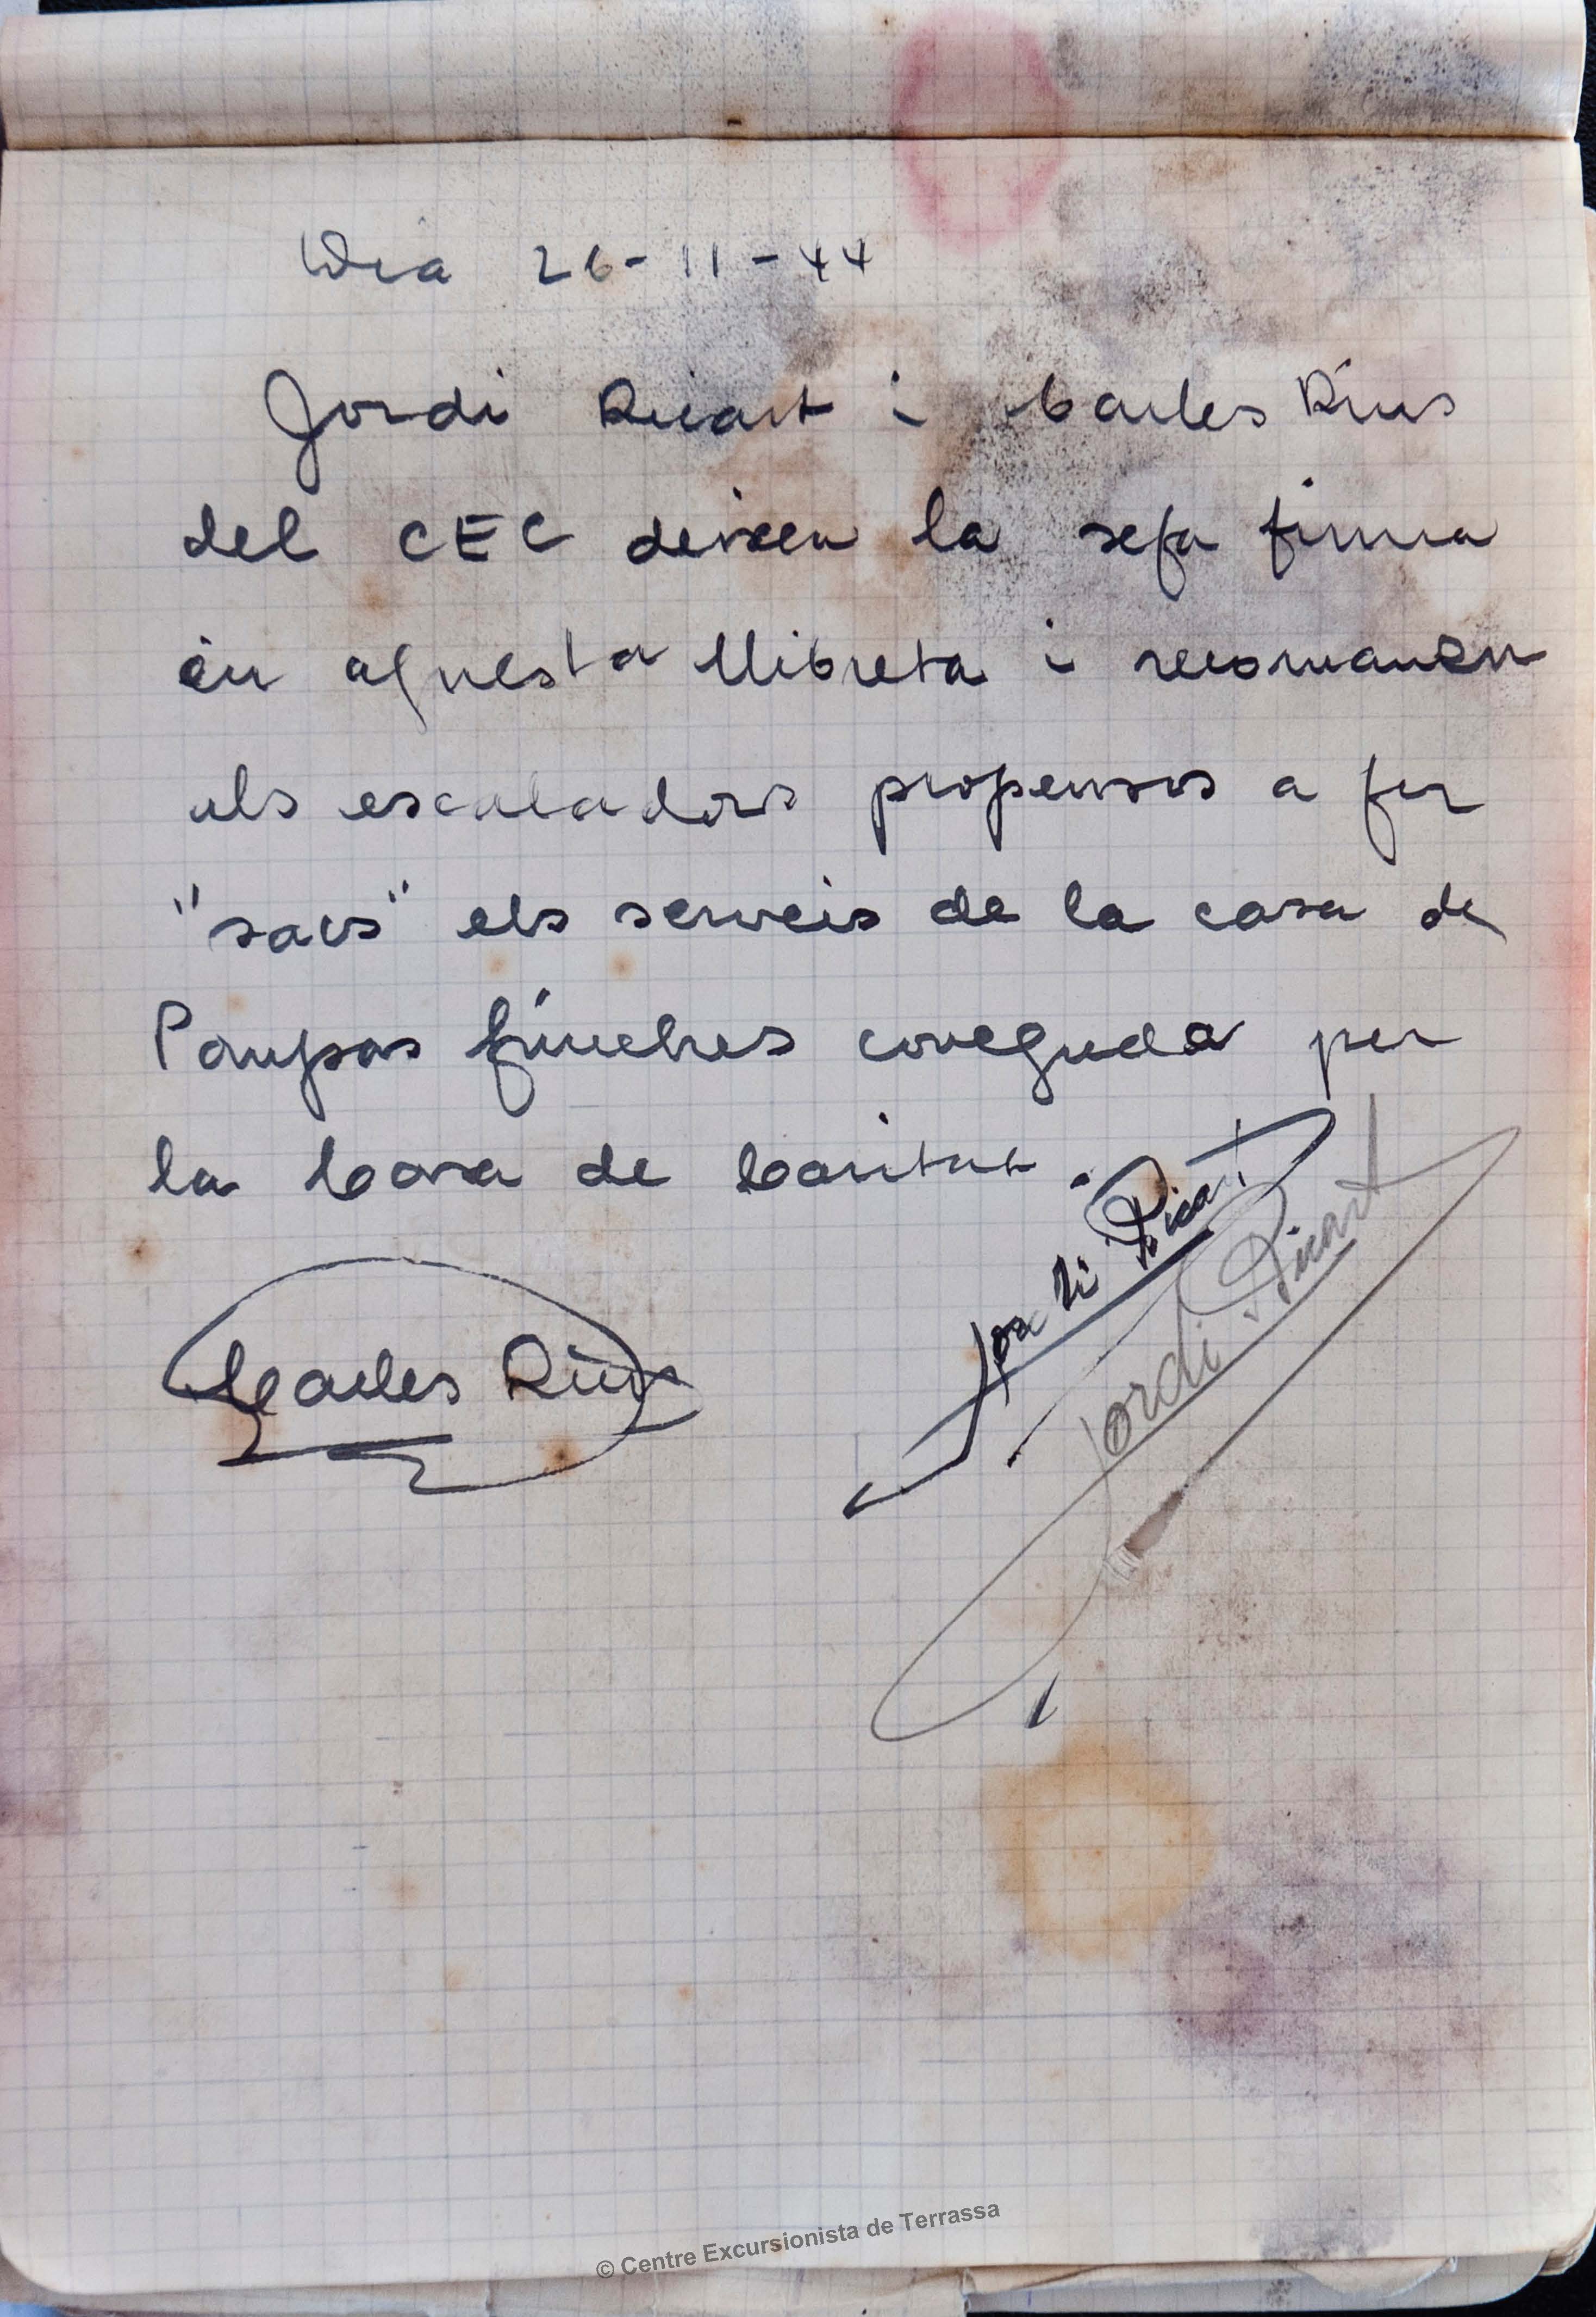 Dia 26-11-44
Jordi Ricart i Carles Rius
del CEC deixen la sefa firma
en aquesta llibreta i recomanen
als escaladors propensos a fer
"sacs" els serveis de la casa de
Pompas fúnebres coneguda per
la Casa de Caritat.
Jordi Ricart
Jordi Ricart
Carles Rius
© Centre Excursionista de Terrassa